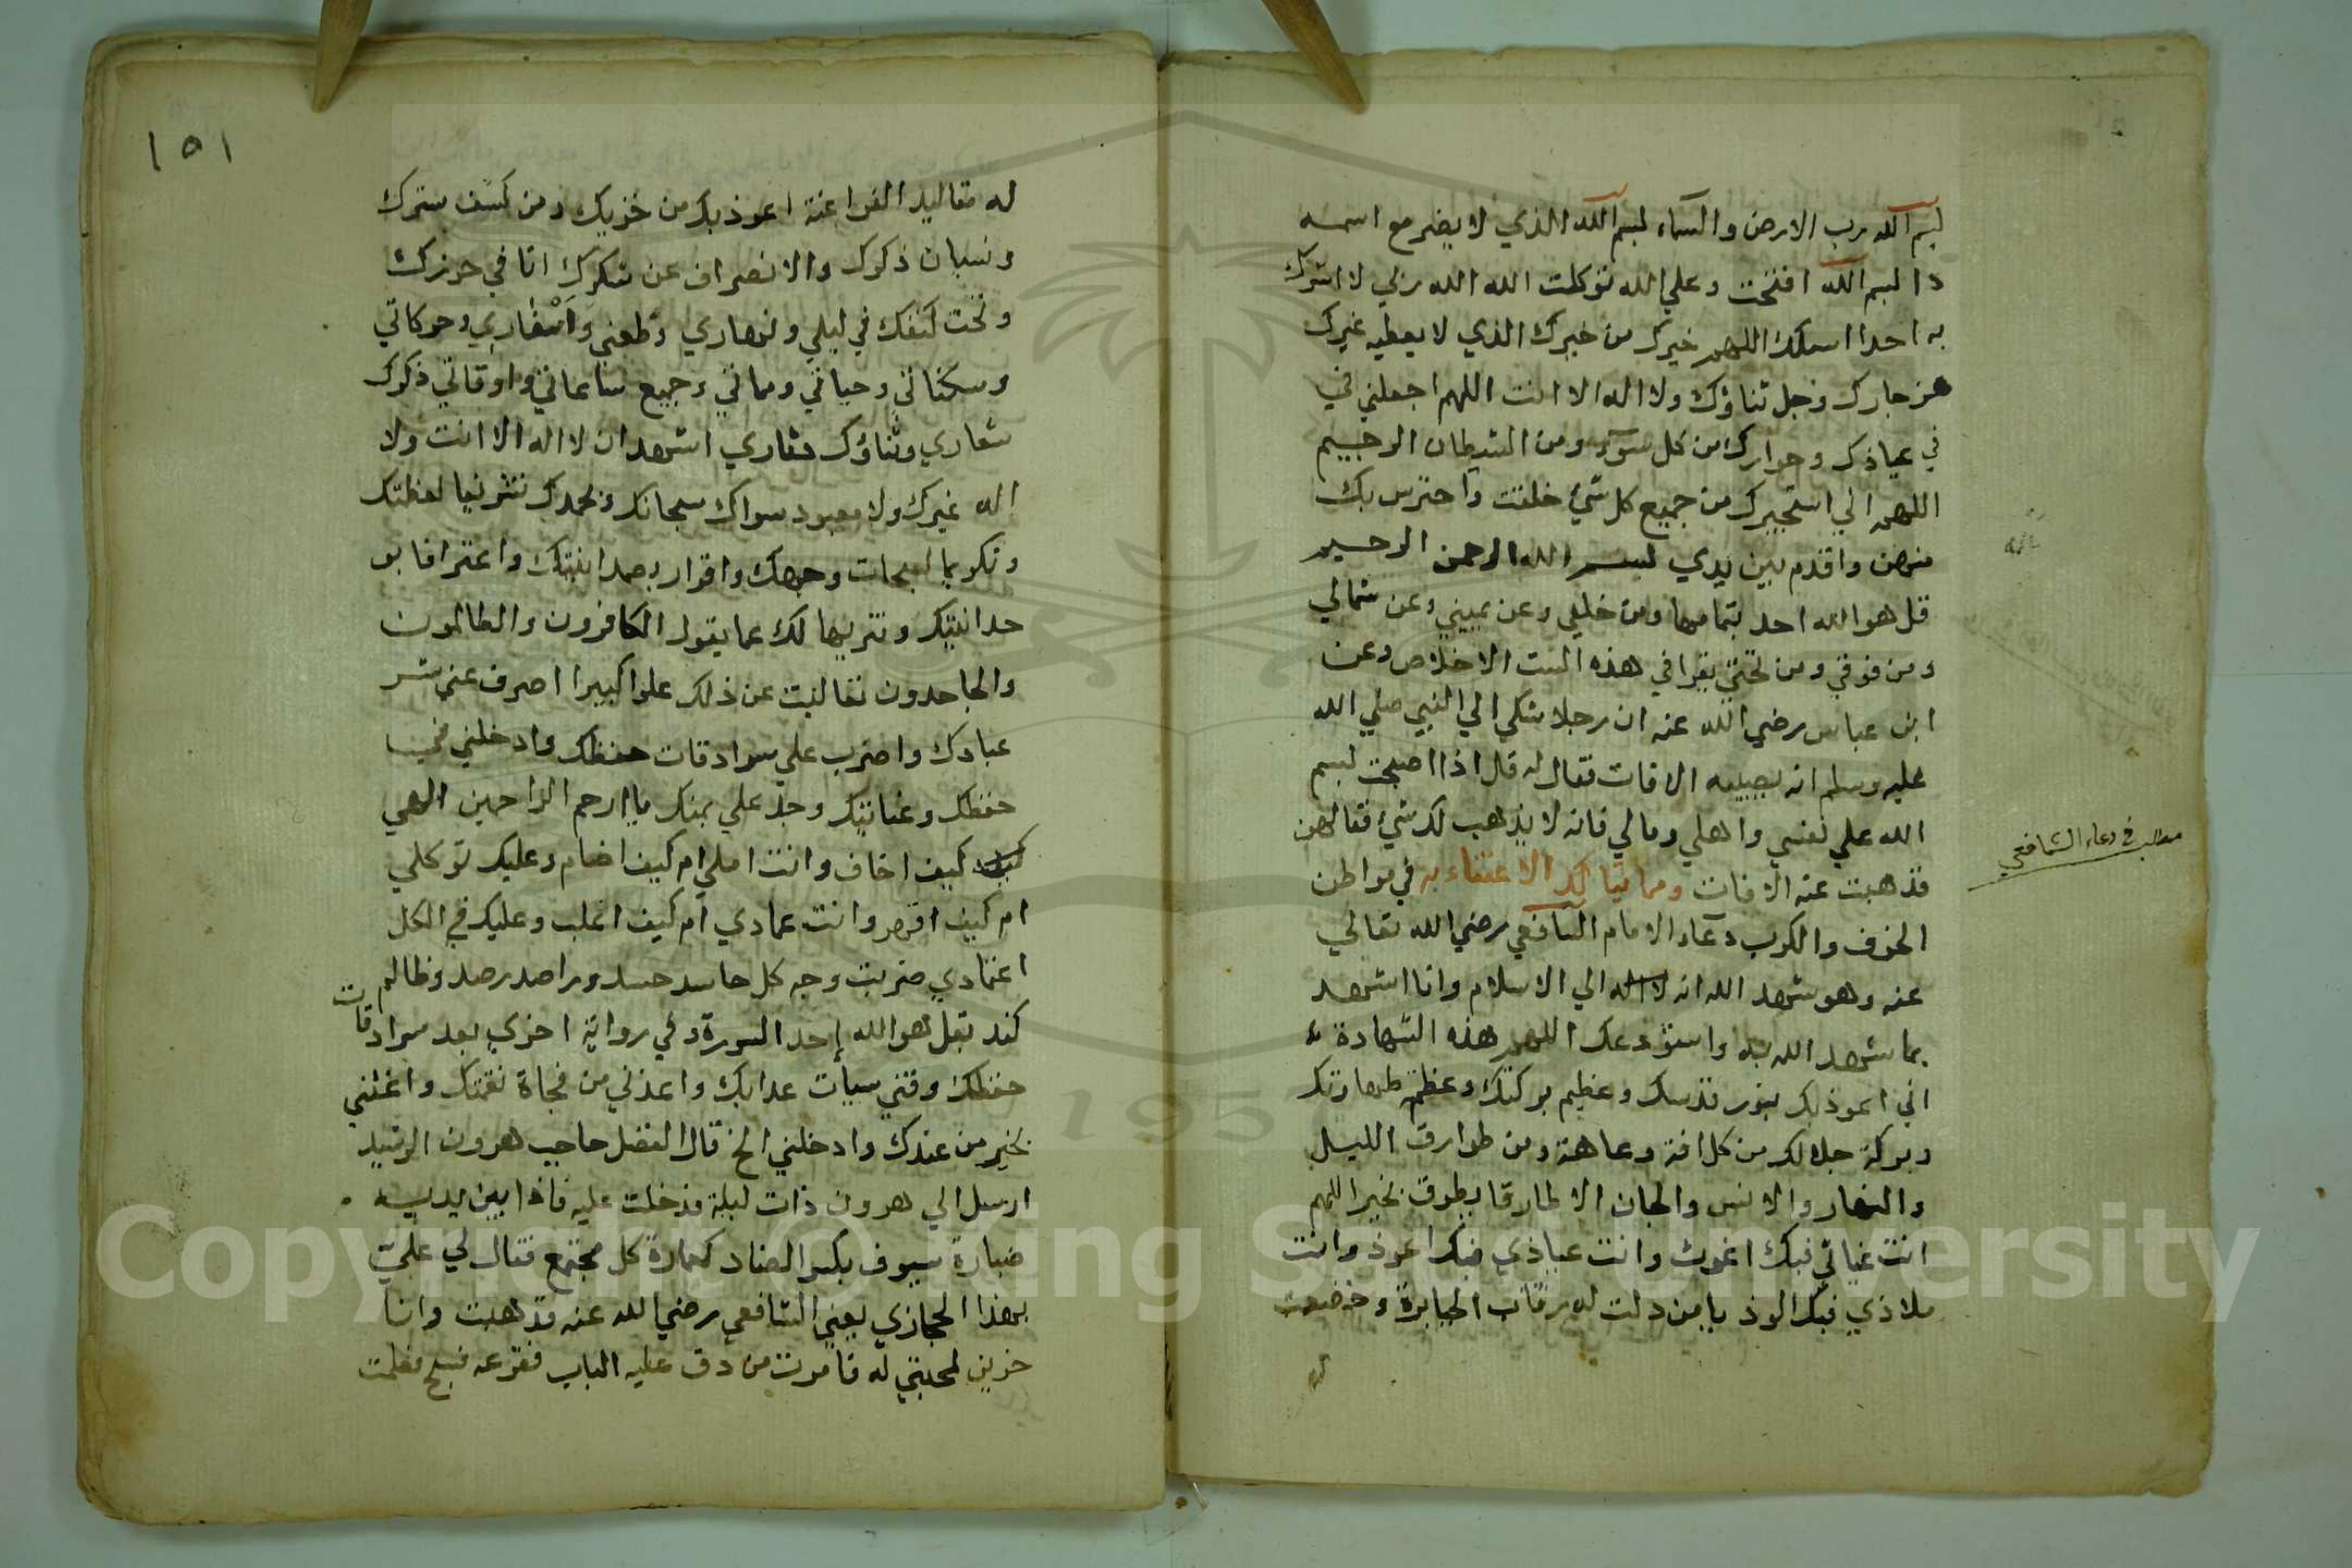 بسم الله رب الارض والسماء بسم الله الذي لا يضر مع اسمه
دا بسم الله افتتحت وعلي الله توكلت الله الله ربي لا اشرك
به احدا اسئلك اللهم خيرك من خيرك الذي لا يعطيه غيرك
عز جارك وجل ثناؤك ولا اله الا انت اللهم اجعلني في
في عياذك وجوارك من كل سوء ومن الشيطان الرجيم
اللهم اني استجيرك من جميع كل شيء خلقت واحترس بك
منهن واقدم بين يدي بسم الله الرحمن الرحيم
قل هو الله احد بتمامها ومن خلفي وعن يميني وعن شمالي
ومن فوقي ومن تحتي يقرا في هذه الست الاخلاص وعن
ابن عباس رضي الله عنه ان رجلا شكي الي النبي صلي الله
عليه وسلم انه يصيبه الافات فقال له قال اذا اصبحت بسم
الله علي نفسي واهلي ومالي فانه لا يذهب لك شيء فقالهن
فذهبت عنه الافات ومما يتاكد الاعتناء به في مواطن
الخوف والكرب دعاء الامام الشافعي رضي الله تعالي
عنه وهو شهد الله انه لا اله الي الاسلام وانا اشهد
بما شهد الله به واستودعك اللهم هذه الشهادة
اني اعوذ بك بنور قدسك وعظيم بركتك وعظمة طهارتك
وبركة جلالك من كل افة وعاهة ومن طوارق الليل
والنهار والانس والجان الا طارقا يطرق بخير اللهم
انت غياثي فبك اغوث وانت عياذي فبك اعوذ وانت
ملاذي فبك الوذ يا من دلت له رقاب الجبابرة وخضعت
له
مطلب في دعاء الشافعي
١٥١
له مقاليد الفراعنة اعوذ بك من خزيك ومن كشف سترك
ونسيان ذكرك والانصراف عن شكرك انا في حرزك
وتحت كنفك في ليلي ونهاري وظعني واسفاري وحركاتي
وسكناتي وحياتي ومماتي وجميع ساعاتي واوقاتي ذكرك
شعاري وثناؤك دثاري اشهد ان لا اله الا انت ولا
اله غيرك ولا معبود سواك سبحانك وبحمدك تشريفا لعظمتك
وتكريما لسبحات وجهك واقرار بصمدانيتك واعترافا بو
حدانيتك وتنزيها لك عما يقول الكافرون والظالمون
والجاحدون تعاليت عن ذلك علوا كبيرا اصرف عني شر
عبادك واضرب علي سرادقات حفظك وادخلني في
حفظك وعنايتك وجد علي بمنك يا ارحم الراحمين الهي
كيف كيف اخاف وانت املي ام كيف اضام وعليك توكلي
ام كيف اقهر وانت عمادي ام كيف اغلب وعليك في الكل
اعتمادي ضربت وجه كل حاسد حسد وراصد رصد وظالم
كند بقل هو الله احد السورة وفي رواية اخري بعد سرادقات
حفظك وقني سيات عذابك واعذني من فجاة نقمتك واغثني
بخير من عندك وادخلني الخ قال الفضل حاجب هرون الرشيد
ارسل الي هرون ذات ليلة فدخلت عليه فاذا بين يديه
ضبارة سيوف بكسر الضاد كعمارة كل مجتمع فقال لي علي
بهذا الحجازي يعني الشافعي رضي الله عنه فذهبت وانا
حزين لمحبتي له فامرت من دق عليه الباب فقرعه فقلت